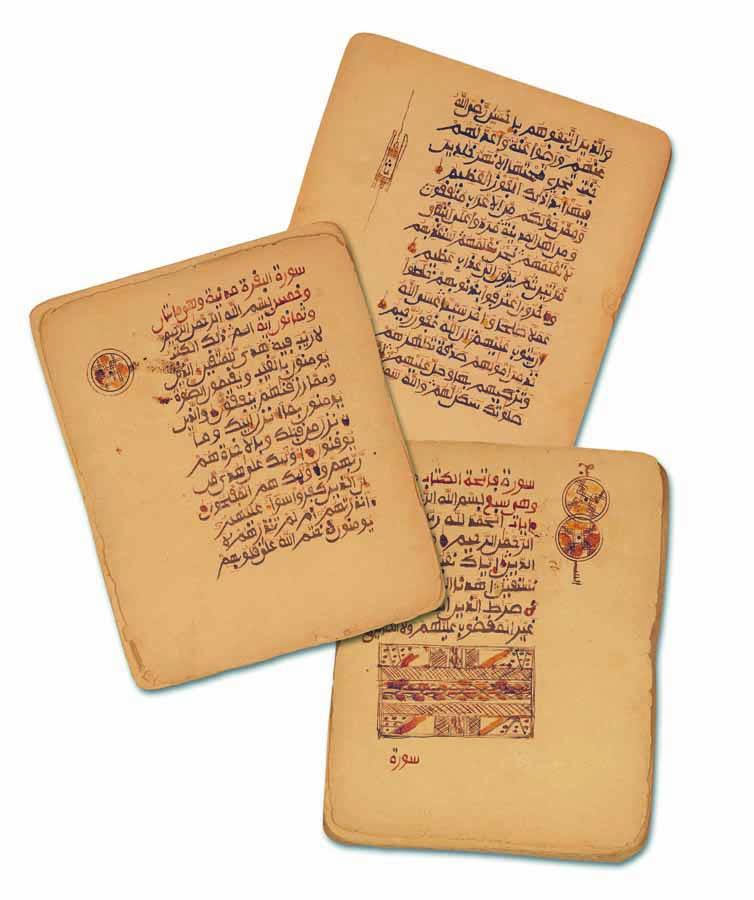 والذين اتبعوهم بإحسن رضي الله
عنهم ورضوا عنه وأعد لهم
جنت تجري تحتها الانهر خلدين
فيها أبدا ذلك الفوز العظيم
وممن حولكم من الاعراب منفقون
ومن أهل المدينة مردوا على النفاق
لا تعلمهم نحن نعلمهم سنعذبهم
مرتين ثم يردون إلى عذاب عظيم
وءاخرون اعترفوا بذنوبهم خلطوا
عملا صلحا وءاخر سيئا عسى الله
أن يتوب عليهم إن الله غفور رحيم
من أموالهم صدقة تطهرهم
وتزكيهم بها وصل عليهم
صلوتك سكن لهم والله
سورة البقرة مدنية وهي مائتان
وخمس بسم الله الرحمن الرحيم
وثمانون اية الم ذلك الكتب
لا ريب فيه هدى للمتقين الذين
يومنون بالغيب ويقيمون الصلوة
ومما رزقنهم ينفقون والذين
يومنون بما أنزل إليك وما
أنزل من قبلك وبالاخرة هم
يوقنون أوليك على هدى من
ربهم وأوليك هم المفلحون
إن الذين كفروا سواء عليهم
ءانذرتهم أم لم تنذرهم لا
يومنون ختم الله على قلوبهم
سورة فاتحة الكتاب
وهي سبع بسم الله
ايات الحمد لله
الرحمن الرحيم
الدين إياك
نستعين اهدنا
صرط الذين
غير المغضوب عليهم ولا
سورة